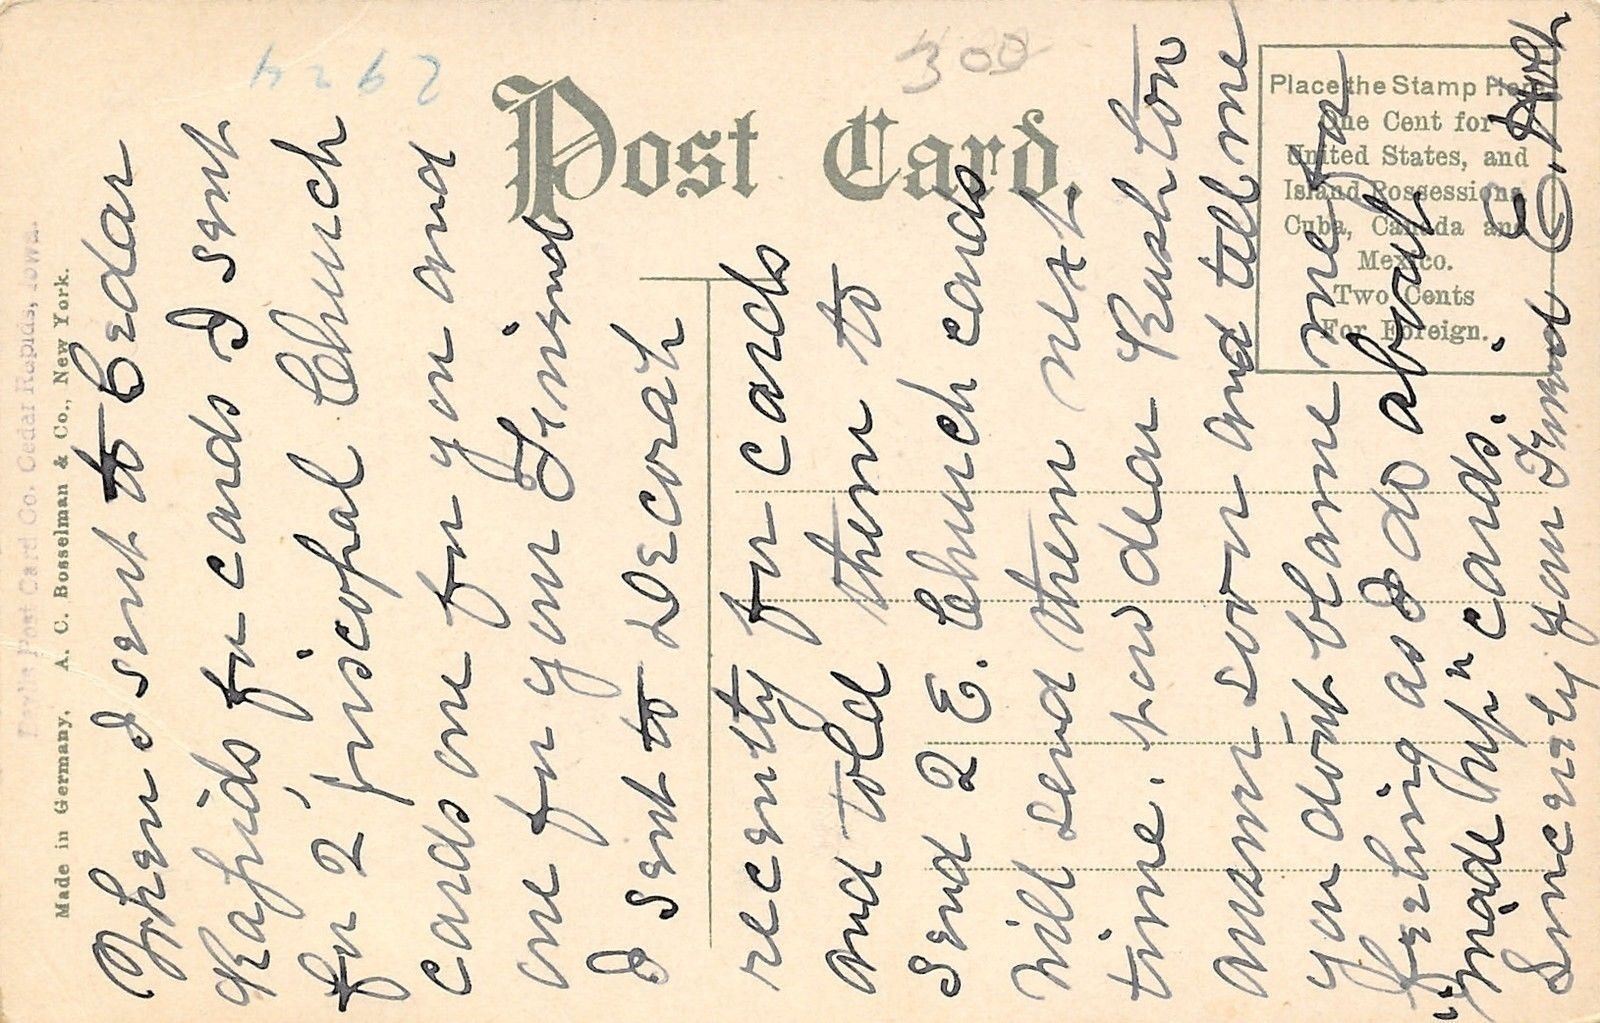 4262
300
Post Card.
Place the Stamp Here
One Cent for
United States, and
Island Possessions
Cuba, Canada and
Mexico.
Two Cents
For Foreign.
Post Card Co. Cedar Rapids, Iowa.
Made in Germany, A. C. Bosselman & Co., New York.
When I sent to Cedar
Rapids for cards I sent
for 2, piscopal Church
cards one for you and
one for your Friend
I sent to Decorah
recently for cards
and told them to
send 2 E. Church cards
Will send them next
time. now dear Rushton
answer soon and tell me
you dont blame me for
feeling as I do about
"made up" cards.
Sincerely your Friend C.